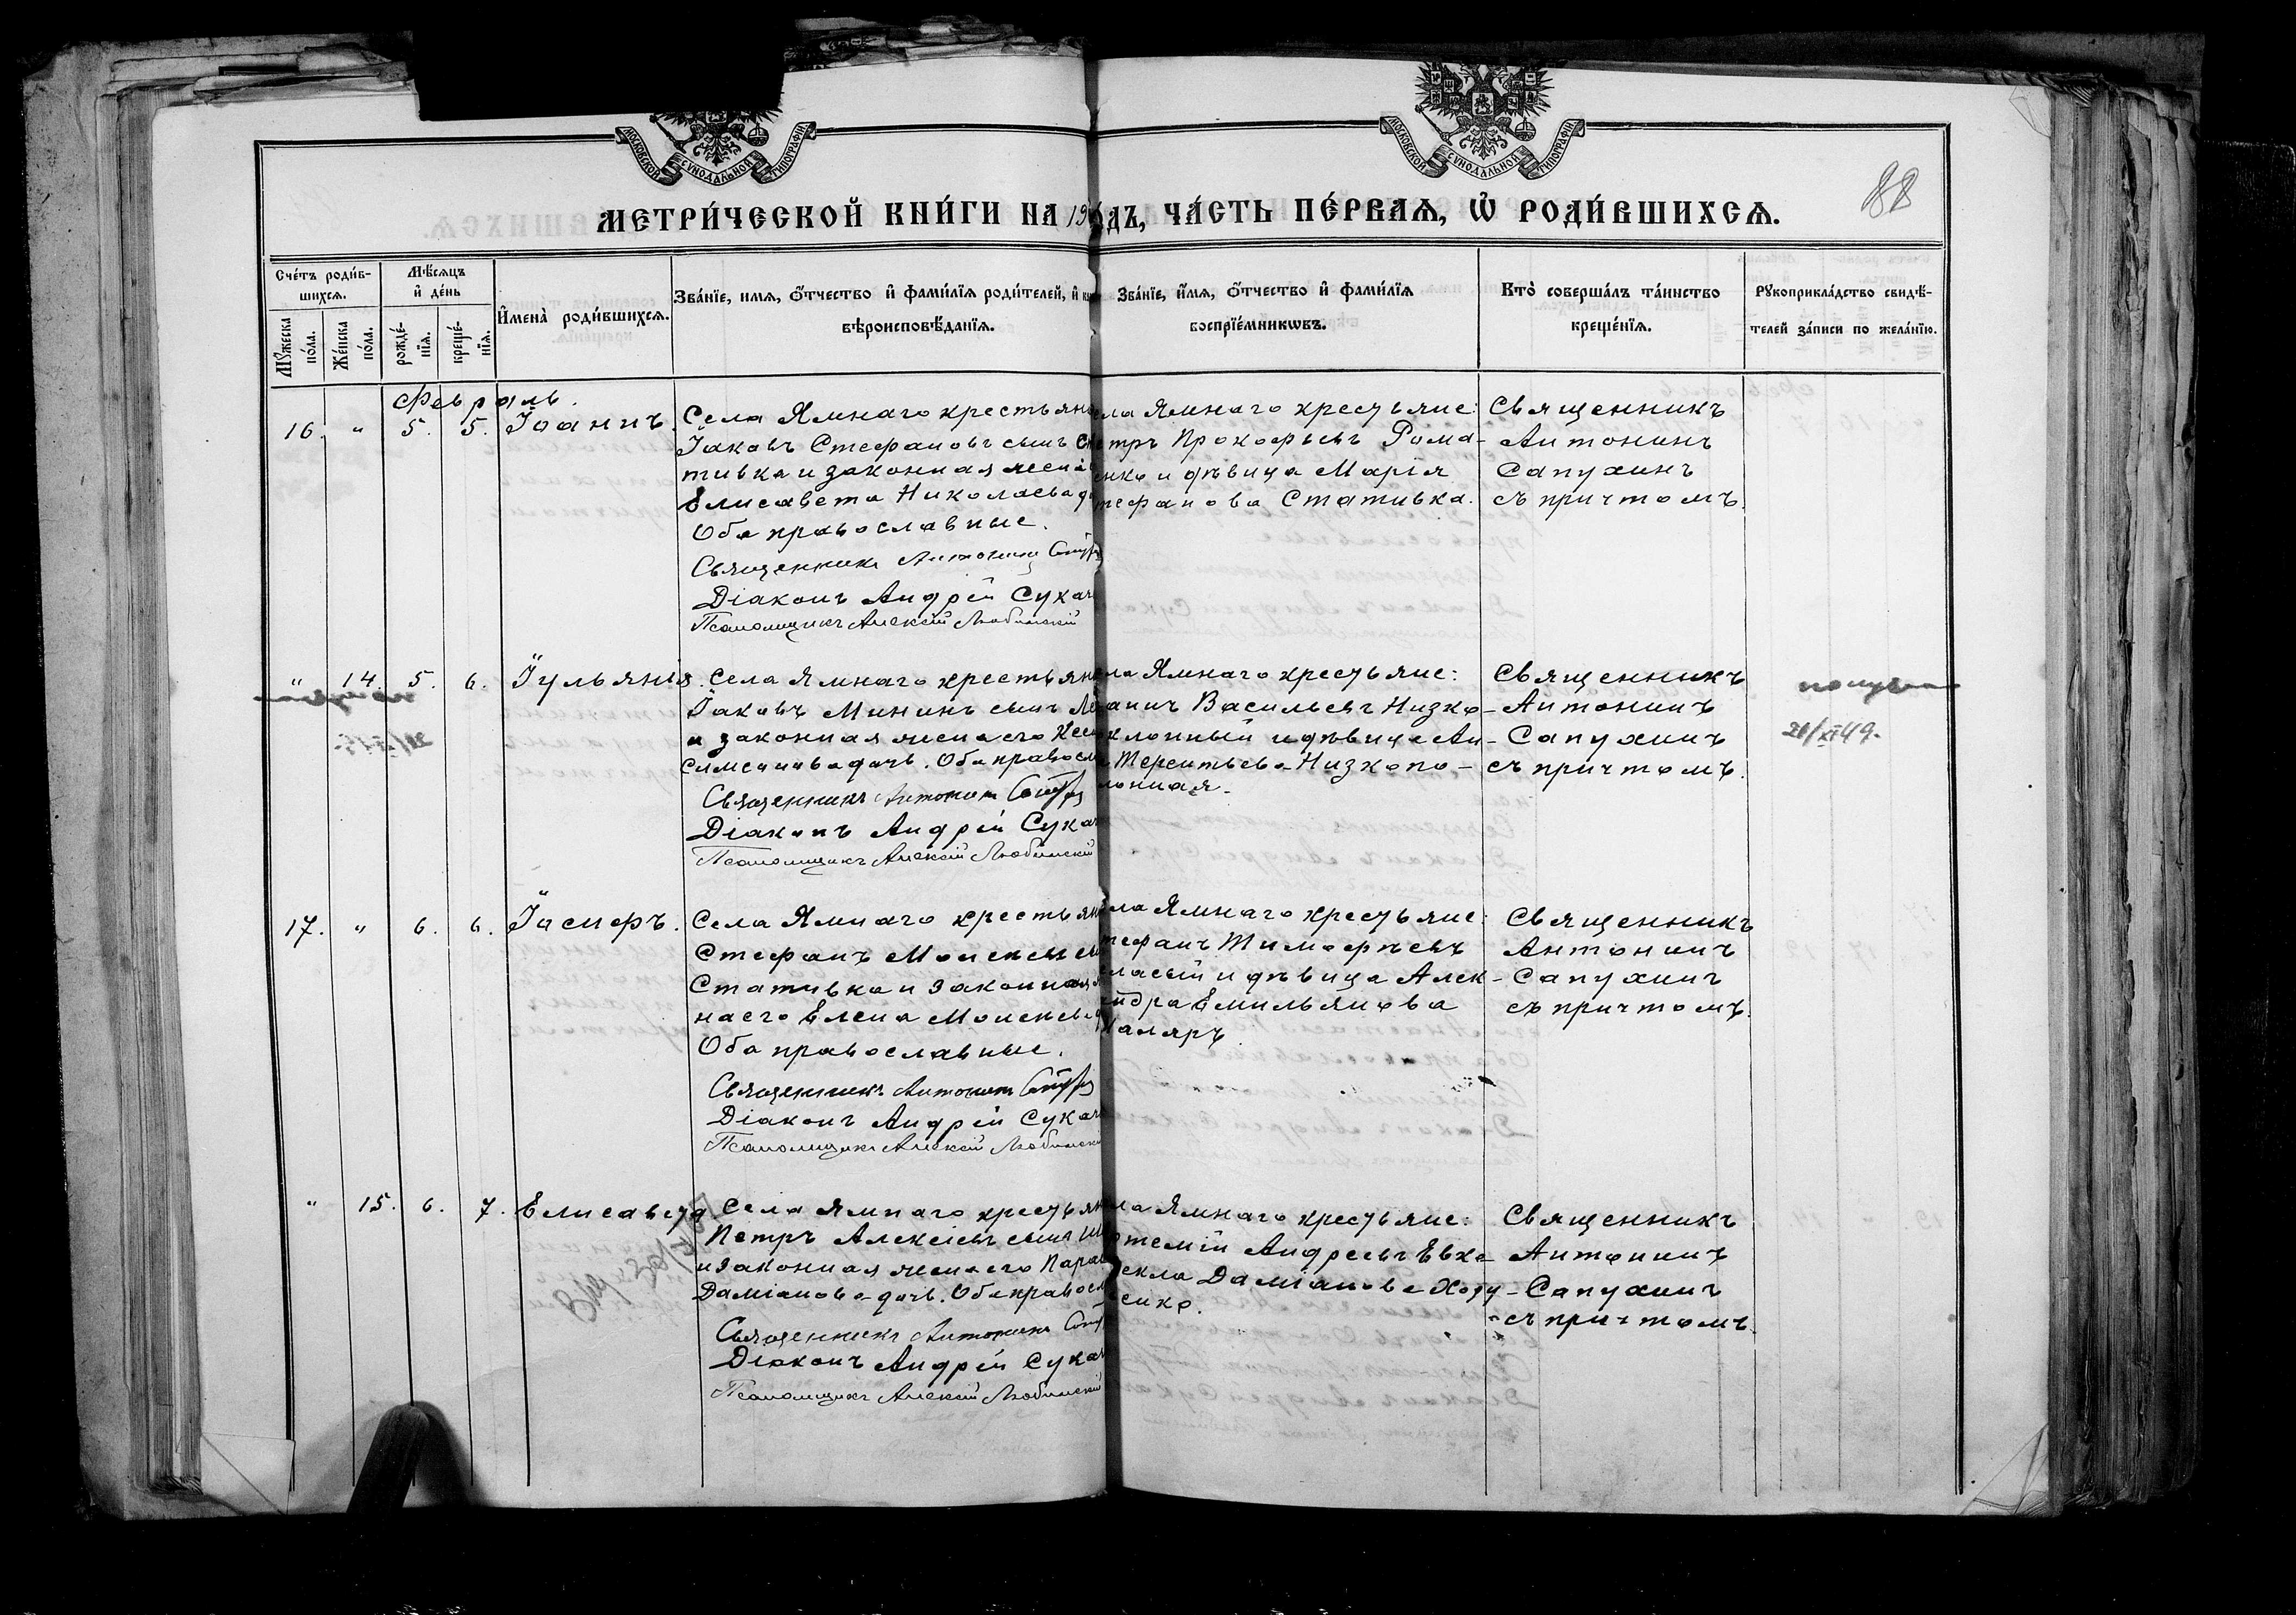 МОСКОВСКОЙ СѴНОДАЛЬНОЙ ТИПОГРАФІИ
МОСКОВСКОЙ СѴНОДАЛЬНОЙ ТИПОГРАФІИ
88
МЕТРИ́ЧЕСКОЙ КНИ́ГИ НА 19 ЧА́СТЬ ПЕ́РВАѦ, Ѡ҆ РОДИ́ВШИХСѦ.
Сче́тъ роди́в-
шихсѧ.
Мꙋ́жеска по́ла.
Же́нска по́ла.
Мѣ́сѧцъ
и҆ де́нь
рожде́-
нїѧ.
креще́-
нїѧ.
И҆мена̀ роди́вшихсѧ.
Зва́нїе, имѧ, ѻ҆́тчество и҆ фами́лїѧ роди́телей, и҆
вѣроисповѣ́данїѧ.
Зва́нїе, и҆́мѧ, ѻ҆́тчество и҆ фами́лїѧ
воспрїе́мникѡвъ.
Кто̀ соверша́лъ та́инство
креще́нїѧ.
Рꙋкоприкла́дство свидѣ́-
телей за́писи по жела́нїю.
Февраль.
16. " 5. 5. Іоаннъ.
Села Ямнаго крестьян
Іаковъ Стефановъ сынъ Ст
тивка и законная жена
Елисавета Николаева
Оба православные.
Священникъ Антонинъ
Діаконъ Андрей Сукач
Псаломщикъ Алексій Любинскій
ела Ямнаго крестьяне:
етръ Прокофьевъ Рома-
енко и дѣвица Марія
тефанова Стативка.
Священникъ
Антонинъ
Сапухинъ
съ причтомъ.
" 14. 5. 6. Іульянія.
Села Ямнаго крестьян
Іаковъ Мининъ сынъ
и законная жена его
Симеонова дочь. Оба правосл
Священникъ Антонинъ
Діаконъ Андрей Сукач
Псаломщикъ Алексій Любинскій
ла Ямнаго крестьяне:
оаннъ Васильевъ Низко-
клонный и дѣвица Ан-
Терентьева Низкопо-
лонная.
Священникъ
Антонинъ
Сапухинъ
съ причтомъ.
28/XI 49.
17. " 6. 6. Іосифъ.
Села Ямнаго крестьян
Стефанъ Моисеевъ сын
Стативка и законная
на его Елена Моисеева
Оба православные.
Священникъ Антонинъ
Діаконъ Андрей Сукач
Псаломщикъ Алексій Любинскій
ела Ямнаго крестьяне:
тефанъ Тимофѣевъ
ласый и дѣвица Алек-
андра Емильянова
Маляръ.
Священникъ
Антонинъ
Сапухинъ
съ причтомъ.
" 15. 6. 7. Елисавета
Села Ямнаго крестьян
Петръ Алексіевъ сынъ
и законная жена его Парас
Даміанова дочь. Оба правосл
Священникъ Антонинъ
Діаконъ Андрей Сукач
Псаломщикъ Алексій Любинскій
ла Ямнаго крестьяне:
ртемій Андреевъ Евхе-
екла Даміанова Ходу-
енко.
Священникъ
Антонинъ
Сапухинъ
съ причтомъ.